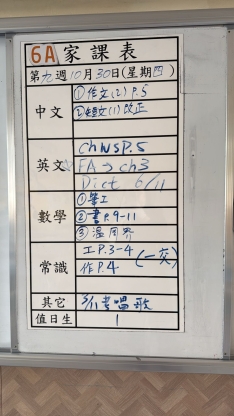 6A 家課表
第九週10月30日(星期四)
中文
①作文(2) P.5
②短文(1)改正
英文
Ch NS P.5
FA → ch3
Dict 6/11
數學
①筆工
②書P.9-11
③溫周界
常識
工P.3-4
作P.4 (一交)
其它
3/11考唱歌
值日生
1